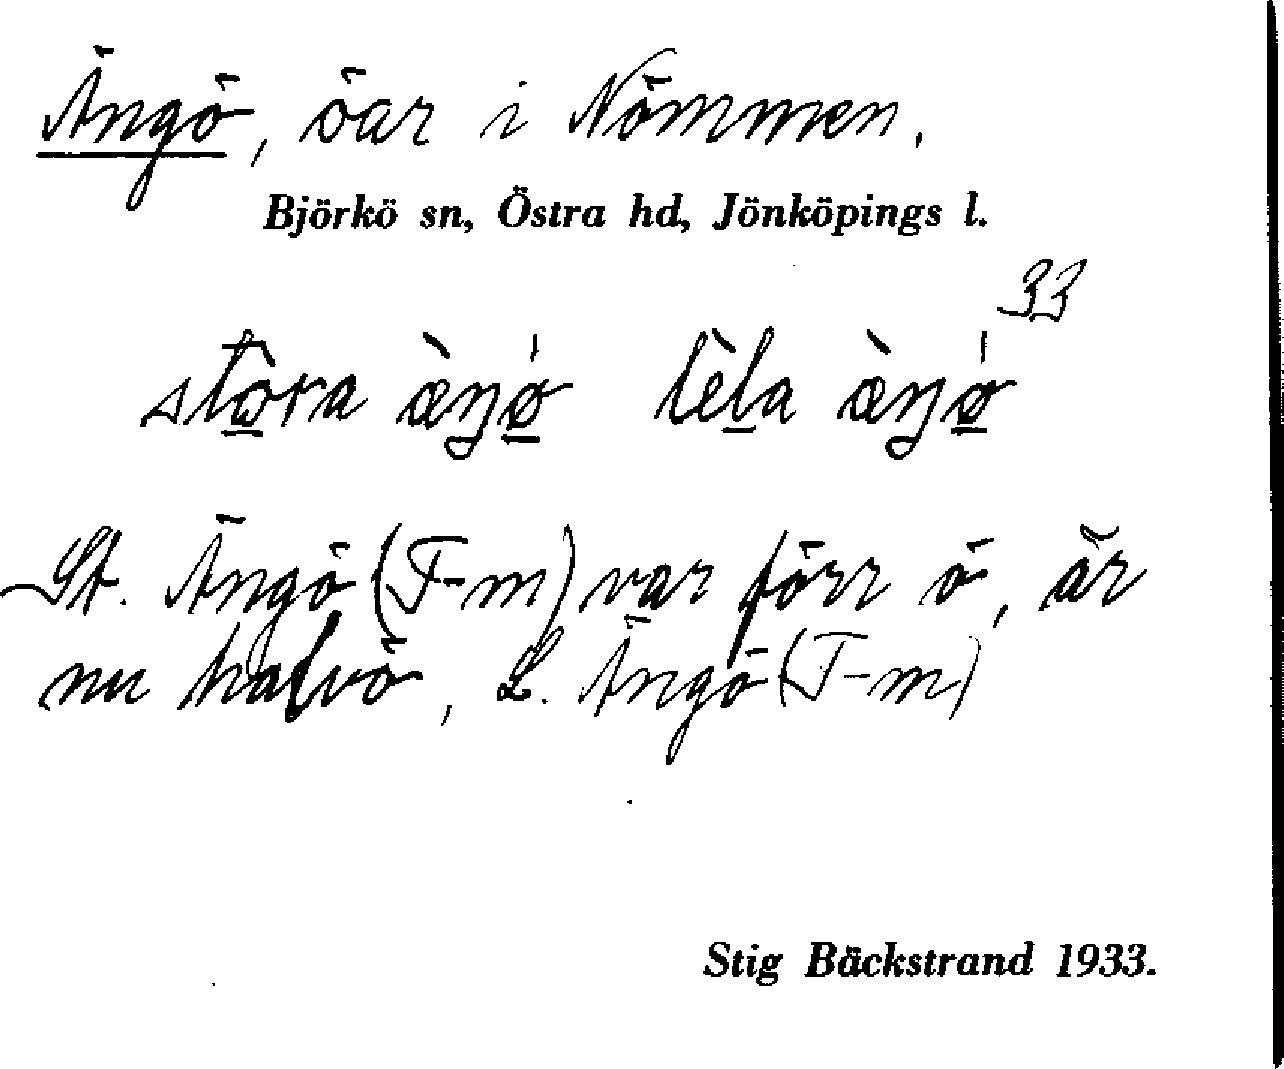 Ängö, öar i Nömmen.
Björkö sn, Östra hd, Jönköpings l.
33
sto̠ra æ̀ŋǿ̠ lèl̠a æ̀ŋǿ̠
St. Ängö (T-m) var förr ö, är
nu halvö, L. Ängö (T-m)
Stig Bäckstrand 1933.